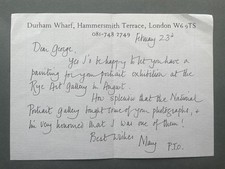 Durham Wharf, Hammersmith Terrace, London W6 9TS
081-748 1749
February 23rd
Dear George,
Yes I'd be happy to let you have a
painting for your portrait exhibition at the
Rye Art Gallery in August.
How splendid that the National
Portrait Gallery bought three of your photographs, &
I'm very honoured that I was one of them!
Best wishes
Mary P.T.O.